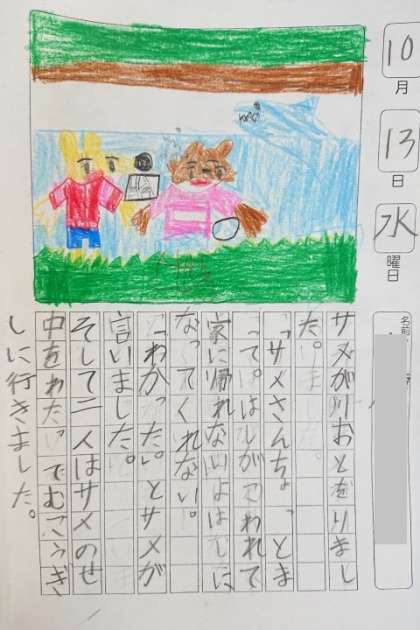 10
月
13
日
水
曜日
名前
サメが川おとをりまし
た。
「サメさんちょっとま
って。はしがこわれて
家に帰れないよはしに
なってくれない。
「わかった。」とサメが
言いました。
そして二人はサメのせ
中をわたっでむこうぎ
しに行きました。